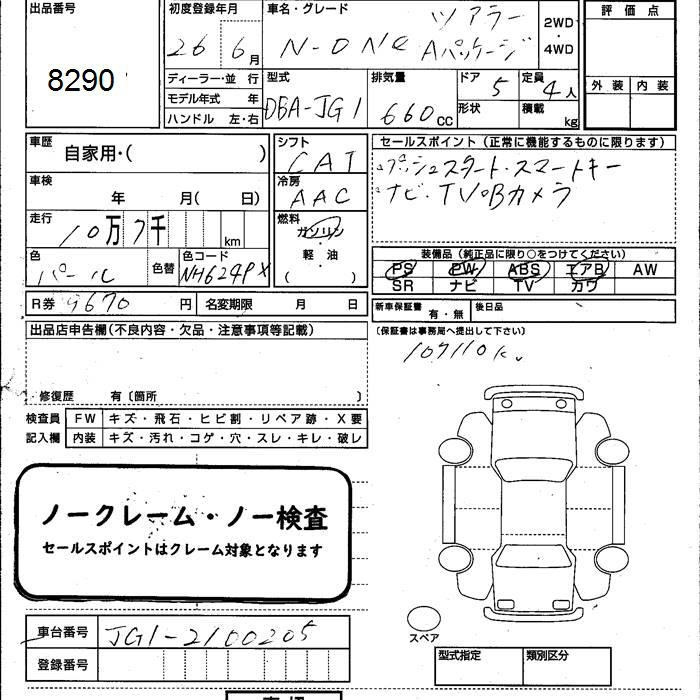 出品番号
8290
初度登録年月
26 6月
車名・グレード
ツアラー
N-ONE Aパッケージ
2WD
・
4WD
評価点
外装 内装
ディーラー・並 行
モデル年式 年
ハンドル 左・右
型式
DBA-JG1
排気量
660cc
ドア
5
形状
定員
4人
積載
kg
車歴
自家用・( )
シフト
CAT
車検
年 月( 日)
冷房
AAC
走行
10万7千 km
燃料
ガソリン
軽・油
( )
色
パール
色替
色コード
NH624PX
R券 9670 円
名変期限 月 日
セールスポイント (正常に機能するものに限ります)
・プッシュスタート・スマートキー
・ナビ・TV・Bカメラ
装備品(純正品に限り○をつけてください)
PS PW ABS エアB AW
SR ナビ TV カワ
新車保証書
有・無
後日品
(保証書は事務局へ提出して下さい)
107110K
出品店申告欄(不良内容・欠品・注意事項等記載)
修復歴 有〔箇所 〕
検査員
記入欄
FW キズ・飛石・ヒビ割・リペア跡・X要
内装 キズ・汚れ・コゲ・穴・スレ・キレ・破レ
ノークレーム・ノー検査
セールスポイントはクレーム対象となります
車台番号 JG1-2100205
登録番号
スペア
型式指定 類別区分